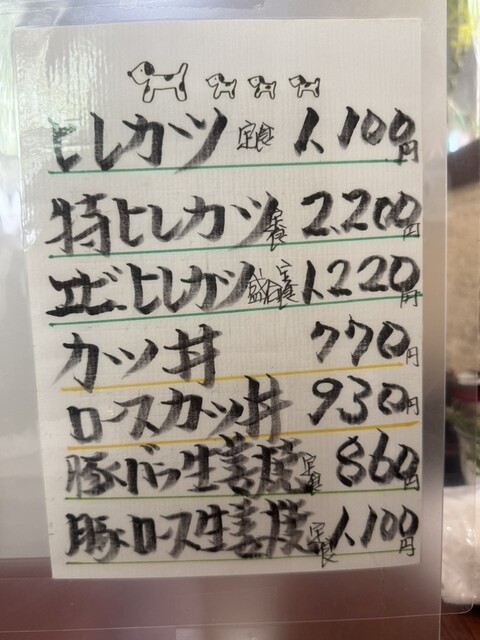 ヒレカツ定食 1,100円
特ヒレカツ定食 2,200円
エビヒレカツ盛合定食 1,220円
カツ丼 770円
ロースカツ丼 930円
豚バラ生姜焼定食 860円
豚ロース生姜焼定食 1,100円